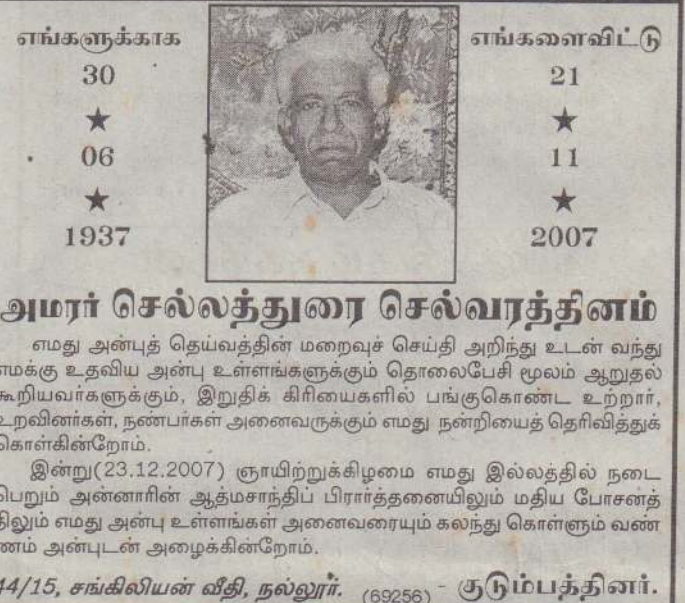 எங்களுக்காக
30
★
06
★
1937
எங்களைவிட்டு
21
★
11
★
2007
அமரர் செல்லத்துரை செல்வரத்தினம்
எமது அன்புத் தெய்வத்தின் மறைவுச் செய்தி அறிந்து உடன் வந்து
எமக்கு உதவிய அன்பு உள்ளங்களுக்கும் தொலைபேசி மூலம் ஆறுதல்
கூறியவர்களுக்கும், இறுதிக் கிரியைகளில் பங்குகொண்ட உற்றார்,
உறவினர்கள், நண்பர்கள் அனைவருக்கும் எமது நன்றியைத் தெரிவித்துக்
கொள்கின்றோம்.
இன்று(23.12.2007) ஞாயிற்றுக்கிழமை எமது இல்லத்தில் நடை
பெறும் அன்னாரின் ஆத்மசாந்திப் பிரார்த்தனையிலும் மதிய போசனத்
திலும் எமது அன்பு உள்ளங்கள் அனைவரையும் கலந்து கொள்ளும் வண்
ணம் அன்புடன் அழைக்கின்றோம்.
44/15, சங்கிலியன் வீதி, நல்லூர். (69256) - குடும்பத்தினர்.